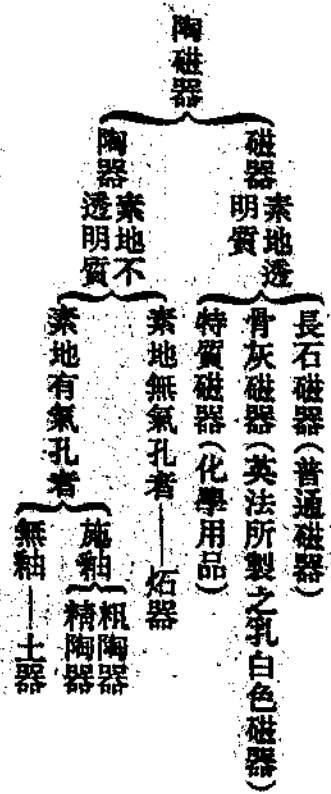 陶磁器
磁器
素地透
明質
長石磁器（普通磁器）
骨灰磁器（英法所製之乳白色磁器）
特質磁器（化學用品）
陶器
素地不
透明質
素地無氣孔者——炻器
素地有氣孔者
施釉
粗陶器
精陶器
無釉——土器